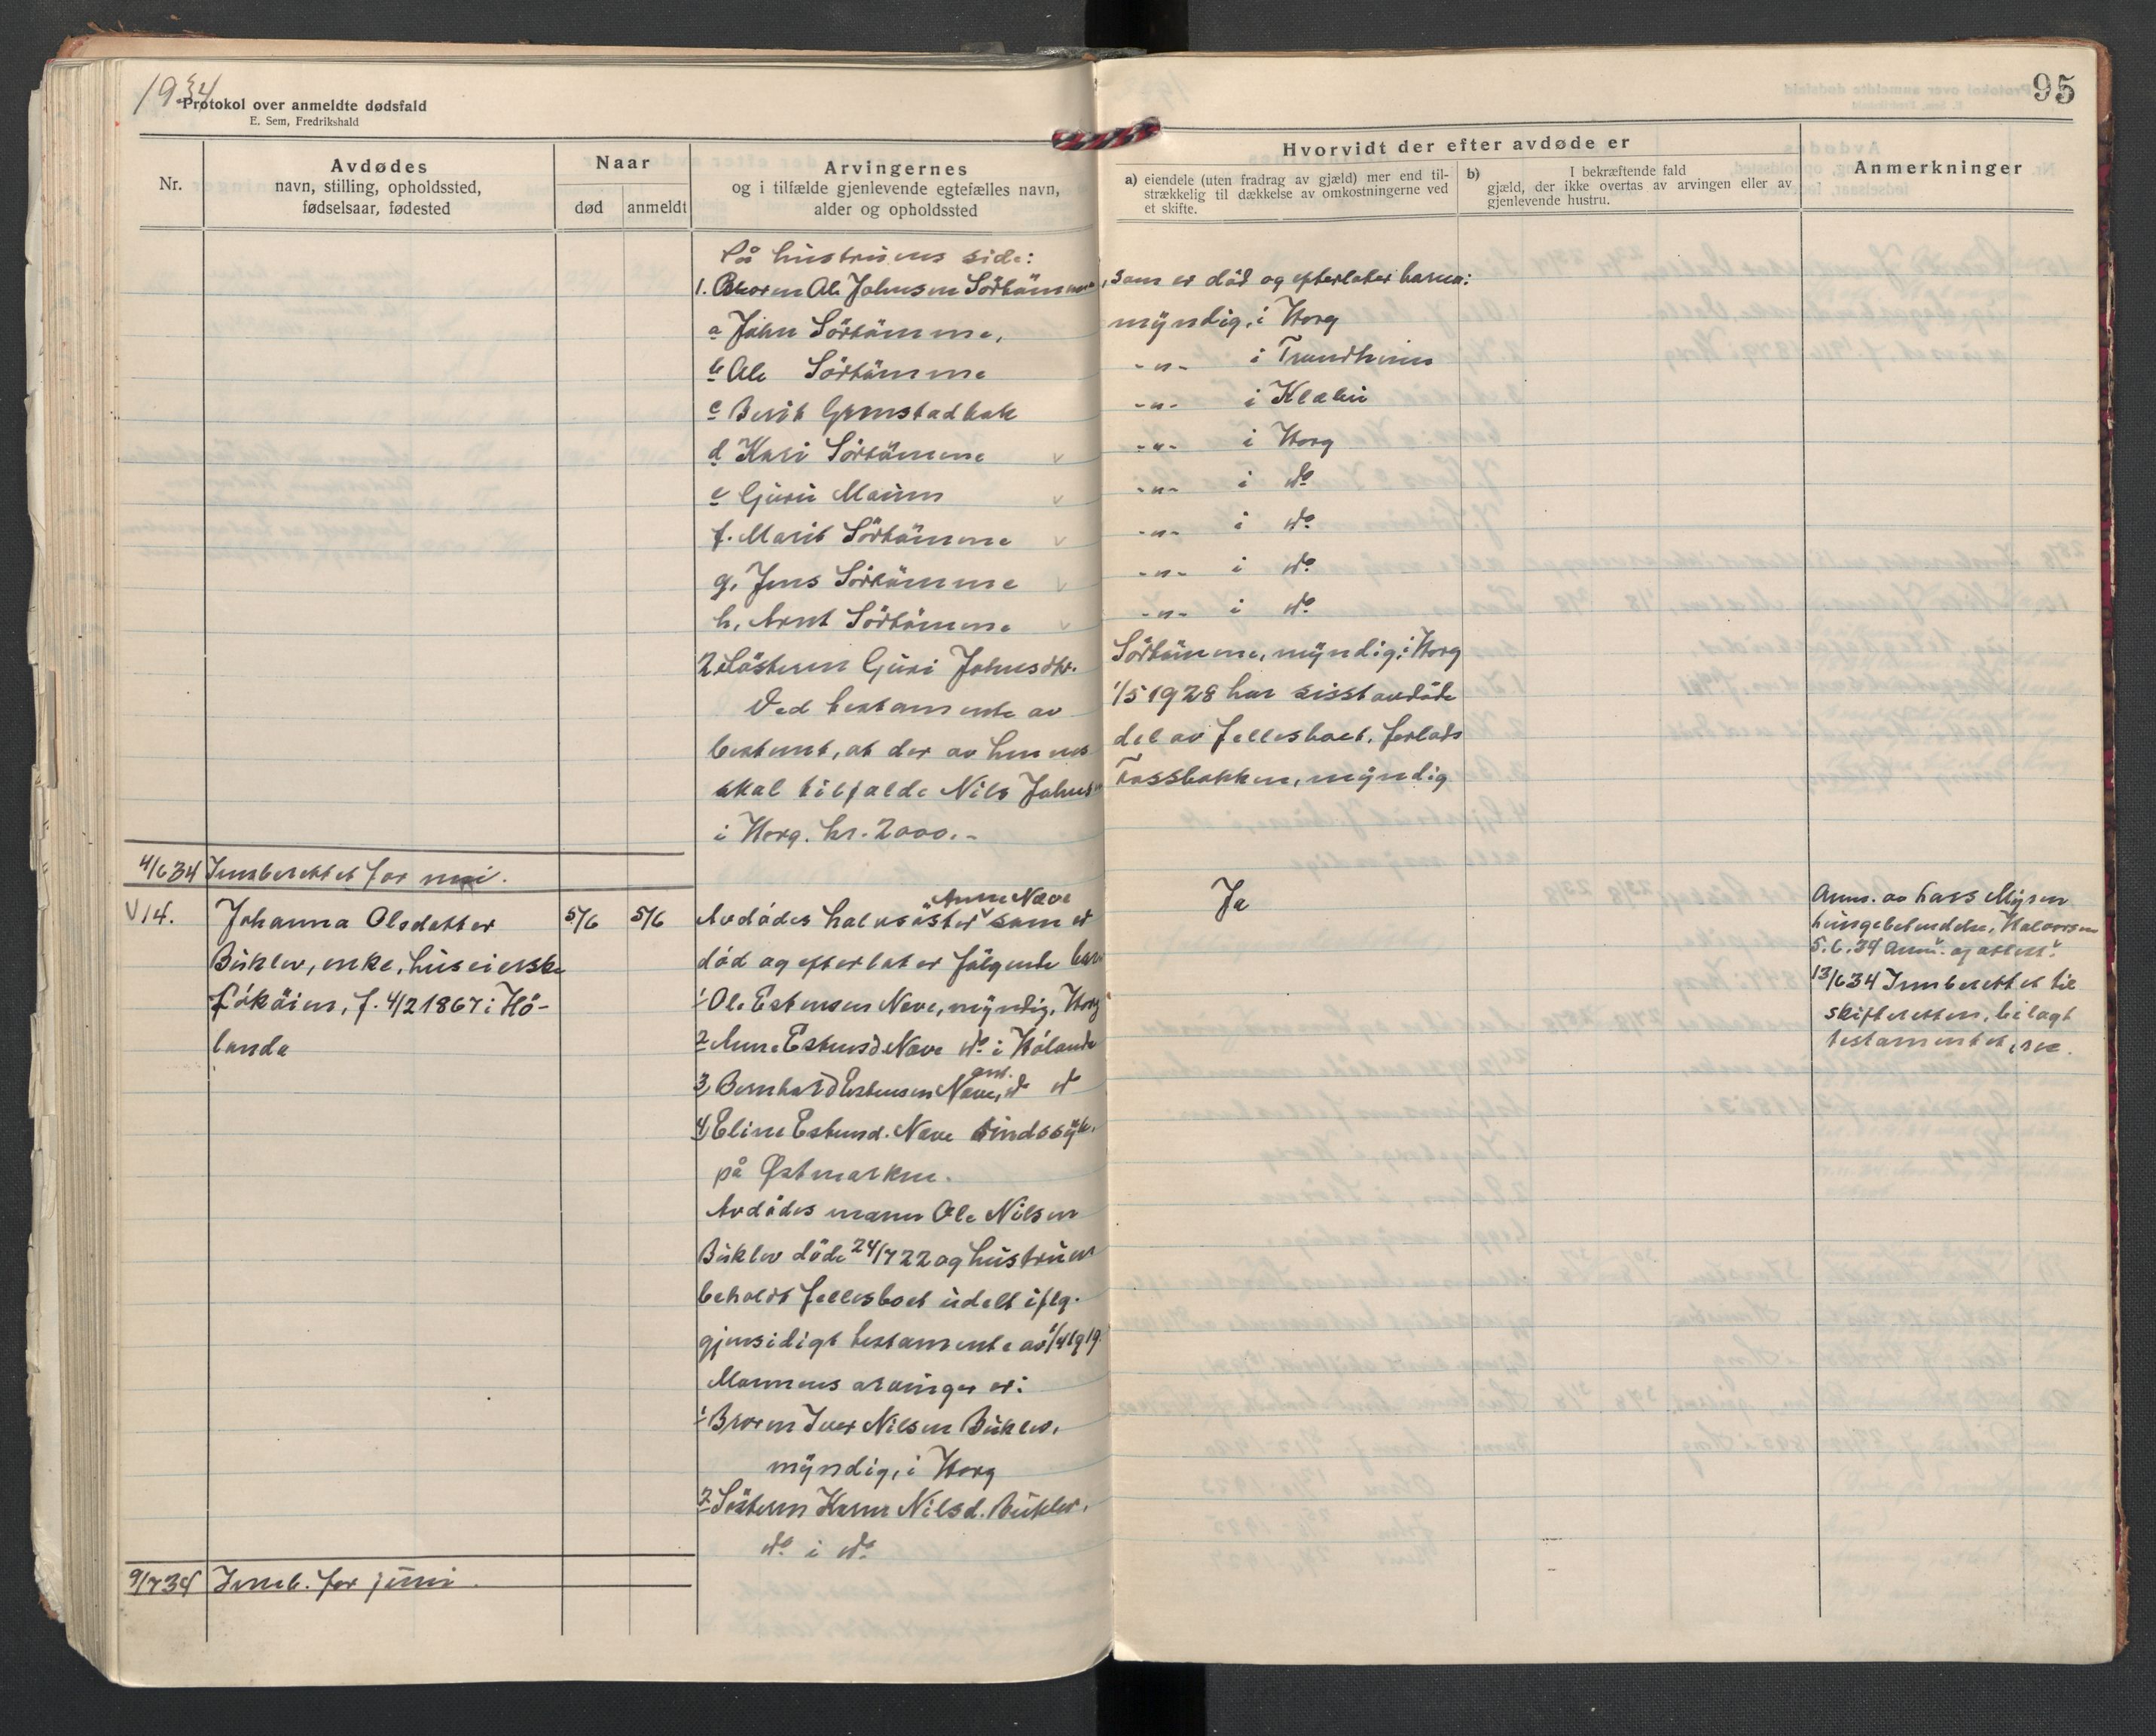 1934
Protokol over anmeldte dødsfald
E. Sem, Fredrikshald
95
Nr.
Avdødes
navn, stilling, opholdssted,
fødselsaar, fødested
Naar
død
anmeldt
Arvingernes
og i tilfælde gjenlevende egtefælles navn,
alder og opholdssted
Hvorvidt der efter avdøde er
a) eiendele (uten fradrag av gjæld) mer end til-
strækkelig til dækkelse av omkostningerne ved
et skifte.
b) I bekræftende fald
gjæld, der ikke overtas av arvingen eller av
gjenlevende hustru.
Anmerkninger
På hustruens side:
1. Broren Ole Johnsen Sörtömme, som er död og efterlater barna:
a John Sörtömme, myndig, i Horg
b Ole Sörtömme -"- i Trondheim
c Berit Grinstadbak -"- i Klæbu
d Kari Sörtömme v -"- i Horg
e Guru Maum v -"- i do
f. Marit Sörtömme v -"- i do
g. Jens Sörtömme v -"- i do
h. Arnt Sörtömme v -"- i do
2. Søsteren Guri Johnsdtr. Sörtömme, myndig i Horg
Ved testamente av 1/5 1928 har sisst avdöde
bestemt, at der av hennes del av fellesboet, forlods
skal tilfalde Nils Johnsen Fossbakken, myndig
i Horg. kr. 2000.-
4/6 34 Innberettet for mai.
V 14.
Johanna Olsdatter
Buklev, enke, huseierske
Lököien, f. 4/2 1867 i Hö-
landa
5/6
5/6
Anne Neve
Avdödes halvsöster v som er
död og efterlater fölgende barn
1 Ole Estensen Neve, myndig, Horg
2 Anne Estensd Neve do i Hölanda
3, Bernhard Estensen Neve, do do
4) Eline Estensd. Neve sindssyk.
på Østmarken.
Avdödes mann Ole Nilsen
Buklev döde 24/7 22 og hustruen
beholdt fellesboet udelt iflg.
gjensidigt testamente av 1/4 1919.
Mannens arvinger er:
1 Broren Iver Nilsen Buklev,
myndig, i Horg
2 Søsteren Karen Nilsd. Buklev,
do i do
Ja
Anm. av Lars Mysen
Halvorsen
13/6 34 Innberettet til
skifteretten, bilagt
testamentet, 
9/7 34 Innb. for juni.